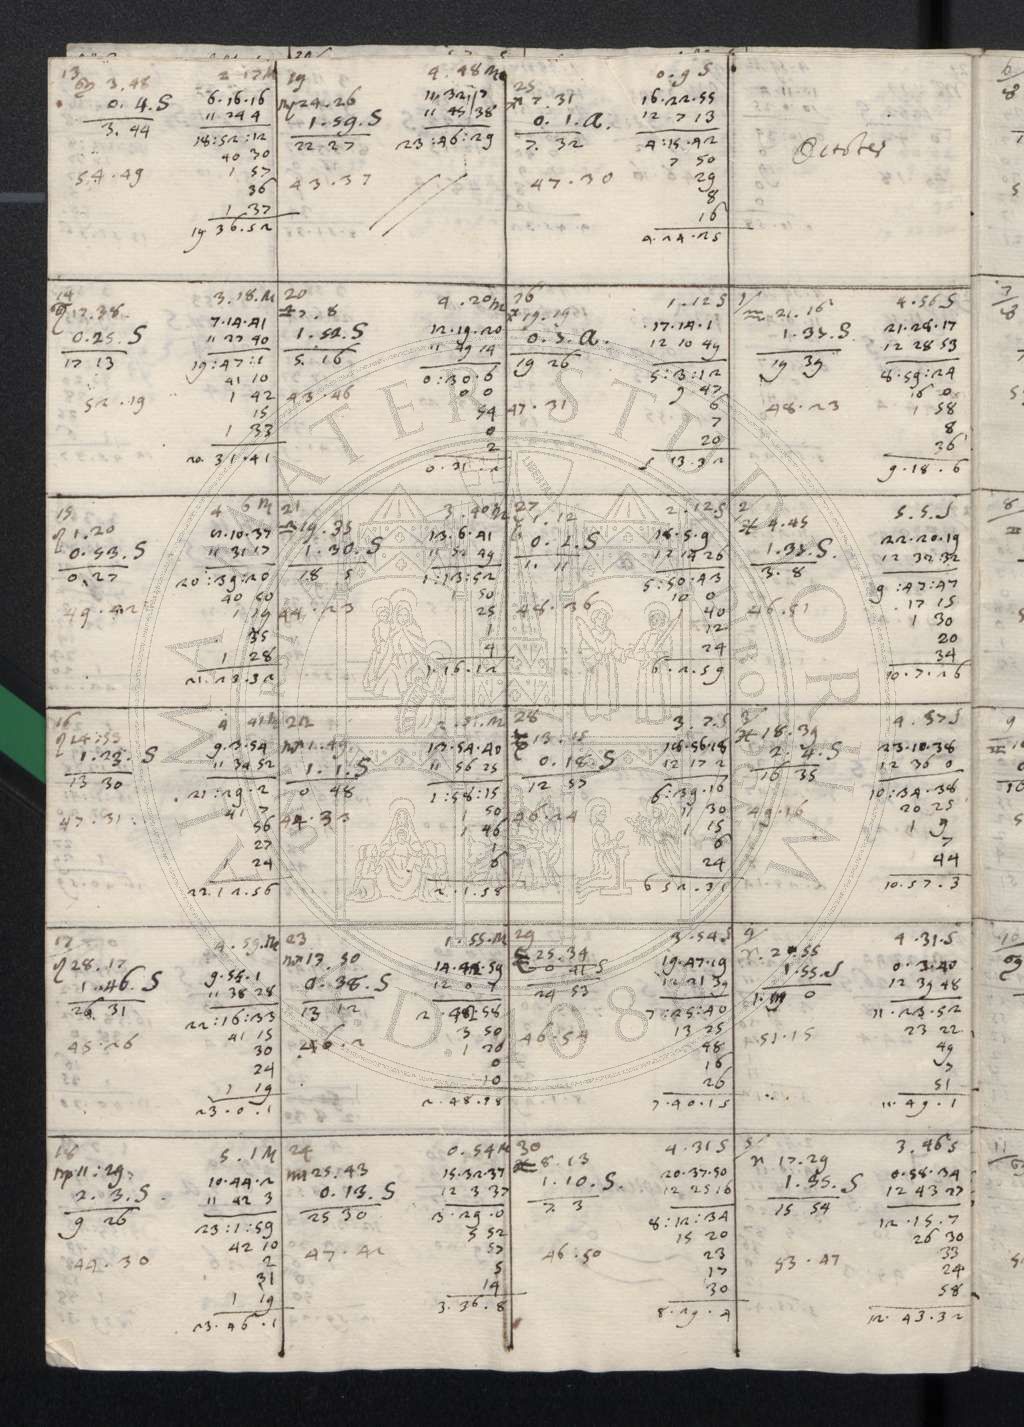 13
3.48
0.4.S
3.44
54.49
2.17 M
6.16.16
11 24 4
18:52:12
40 30
1 57
36
1 37
19 36.52
19
♍24.26
1.59.S
22 27
43.37
4.48 M
11 32 17
11 45 38
23:46:29
25
7.31
0.1.a.
7.32
47.30
0.9 S
16.22.55
12 7 13
4:15.42
7 50
29
8
16
4.24.25
October
14
17.38
0.25.S
17 13
52.19
3.18.M
7.14.41
11 27 40
19:47:1
41 10
1 42
15
1 33
20.31.41
20
7.8
1.52.S
5.16
43.46
4.20 M
12.19.20
11 49 14
0:30.6
0 0
54
0
2
0.31.2
26
19.19
0.3.a.
19 26
47.31
1.12 S
17.14.1
12 10 49
5:3:12
9 47
6
7
20
5 13.32
1
21.16
1.33.S
19 39
48.23
4.56.S
21.28.17
12 28 53
8.59:24
16 0
1 58
8
36
9.18.6
15
1.20
0.53.S
0.27
49.42
4 6 M
11 31 17
20:39:20
40 50
1 19
35
1 28
21.23.32
21
19.35
1.30.S
18 5
44.23
3.40 M
13.6.41
11 52 49
1:13:52
1 50
25
1
4
1.16.12
27
1.12
0.2.S
1.11
48.36
2.12 S
5:50.43
10 0
1 40
12
24
6.2.59
2
♓4.45
1.33.S.
3.8
46.51
5.5.S
22.20.19
12 32 32
9:47:47
17 15
1 30
20
34
10.7.26
16
14:53
1.23.S
13 30
47.31
4 41 M
9.3.54
11 34 52
21:29.2
41 7
56
27
1 24
22.12.56
22
1.49
1.1.S
0 48
44.33
2.51.M
13.54.40
11 56 25
1:58:15
1 50
1 46
1
6
2.1.58
28
13.15
0.18.S
12 57
46.24
3.7.S
18.56.18
12 17 2
6:39.16
11 30
1 15
6
24
6 52.31
3
♓18.39
2.4.S
16 35
49.16
4.57.S
23.10.38
12 36 0
10:34.38
20 25
1 9
7
44
10.57.3
17
28.17
1.46.S
26 31
45.26
4.59.M
9.55.1
11 38 28
22:16:33
41 15
30
24
1 19
23.0.1
23
13.50
0.38.S
13 12
46.2
1.55.M
12 0 7
2.48:58
3 50
1 20
0
10
2.48.28
29
25.34
0 41 S
24 53
46.54
3.54 S
19.47.19
12 21 39
7:25:40
13 25
48
16
26
7.40.15
4
2.55
1.55.S
1. 0
51.15
4.31.S
0.3.40
12 39 48
11.23.52
23 22
49
7
51
11.49.1
18
♍11:29
2.3.S
9 26
44.30
5.1 M
10.44.2
11 42 3
23:1:59
42 10
2
31
1 19
23.46.1
24
25.43
0.13.S
25 30
47.42
0.54 M
15.32.37
12 3 37
3.29.0
5 52
57
5
14
3.36.8
30
8.13
1.10.S.
7.3
46.50
4.31 S
20.37.50
12 25 16
8:12:34
15 20
23
17
30
8.29.4
5
17.29
1.35.S
15 54
53.47
3.46 S
0.58.34
12 43 27
12.15.7
26 30
33
24
58
12.43.32